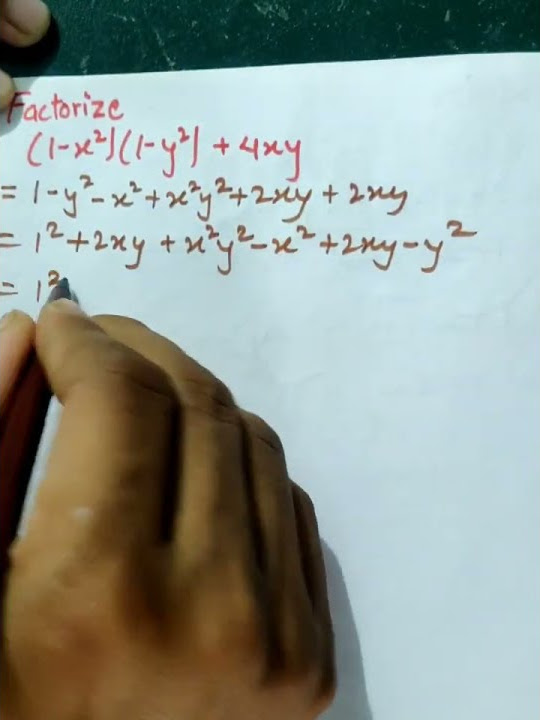 Factorize
(1-x²)(1-y²) + 4xy
= 1-y²-x²+x²y²+2xy+2xy
= 1²+2xy+x²y²-x²+2xy-y²
= 1²